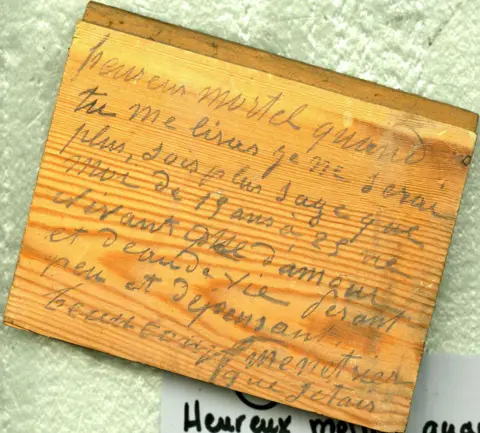 heureux mortel quand
tu me liras je ne serai
plus, sois plus sage que
moi de 19 ans à 25 ne
vivant que d'amour
et d'eau de vie fesant
peu et depensant
beaucoup menetrier
que j'etais
Heureux